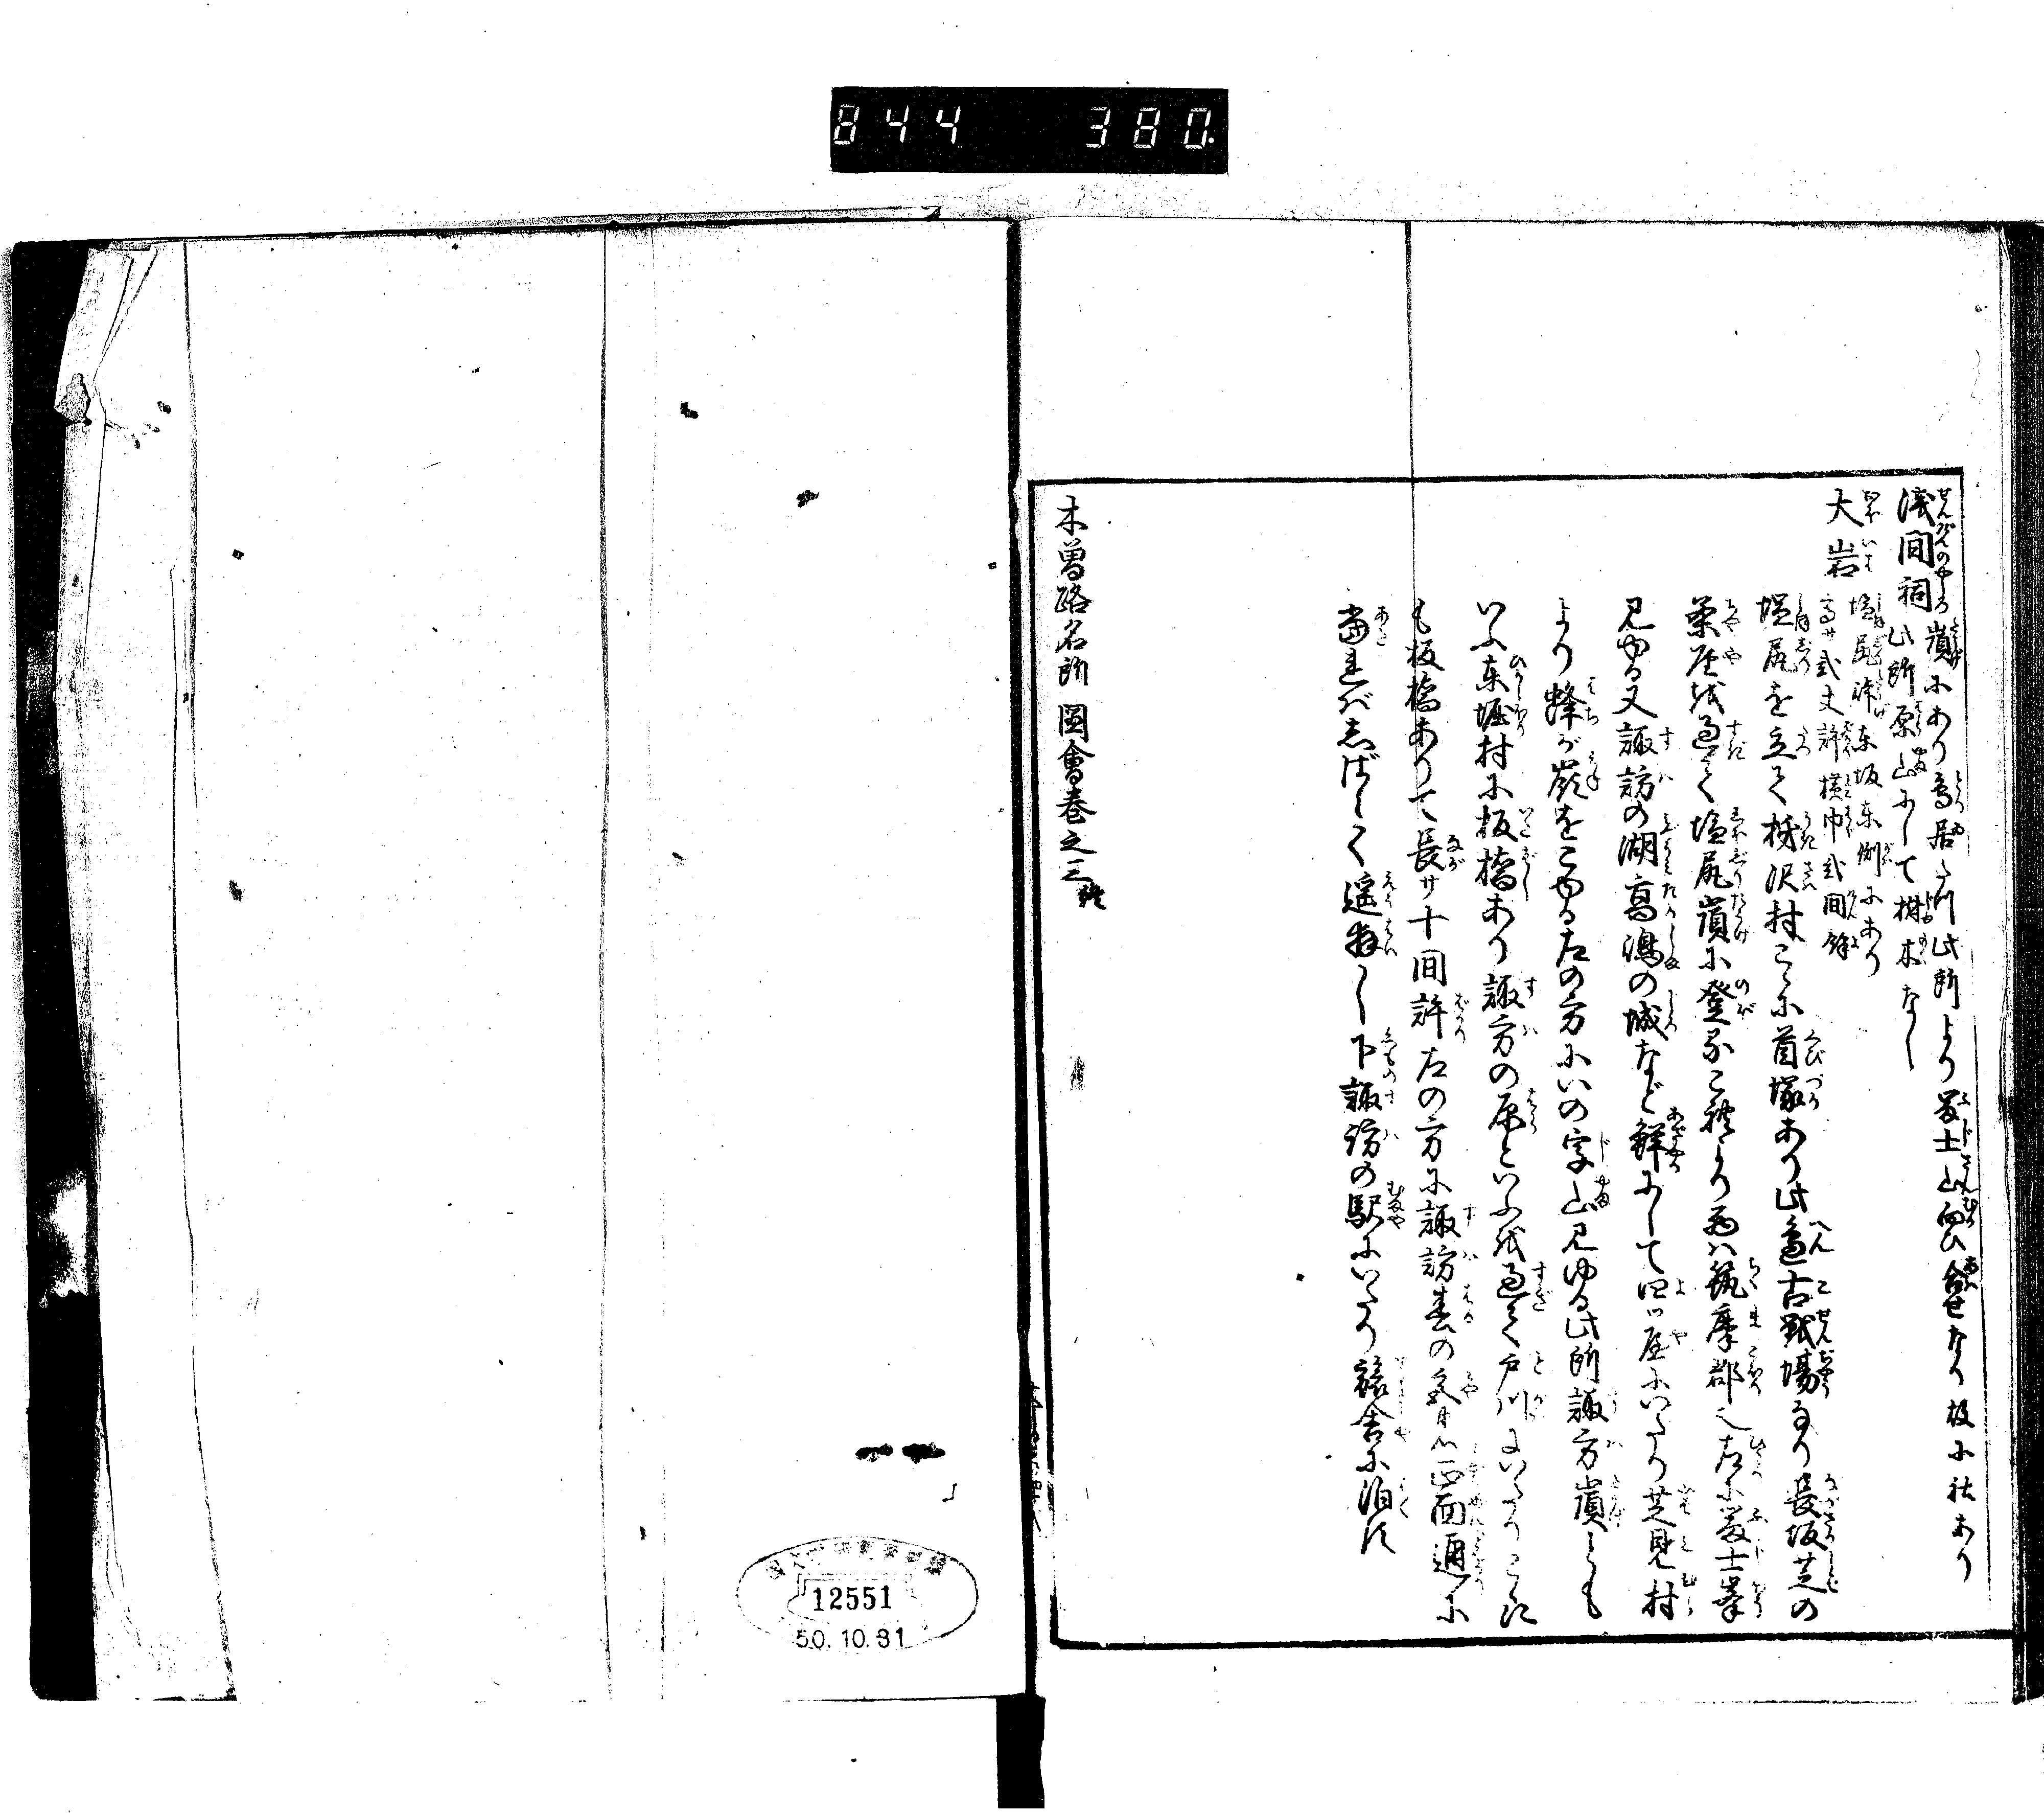 844 380
浅間祠
嶺にあり鳥居たつ此所より冨士山向ひ合せなり坂に社あり
此所原山にして樹木なし
大岩
塩尻峠東坂東側にあり
高サ弐丈許横巾弐間余
塩尻を立て柿沢村こゝに首塚あり此邊古戦場なり長坂芝の
茶屋を過て塩尻嶺に登るこれより西は筑摩郡也左に冨士峯
見ゆる又諏訪の湖高嶋の城など鮮にして四ツ屋にいたり芝見村
より蜂が嶺をこゆる左の方にいの字山見ゆる此所諏方嶺とも
いふ東堀村に板橋あり諏方の原といふを過て戸川にいたりこゝに
も板橋ありて長サ十間許左の方に諏訪春の宮有正面通に
當れバしばらく遥拝し下諏訪の駅にいたり旅舎に泊る
木曽路名所圖會巻之三終
12551
50.10.31